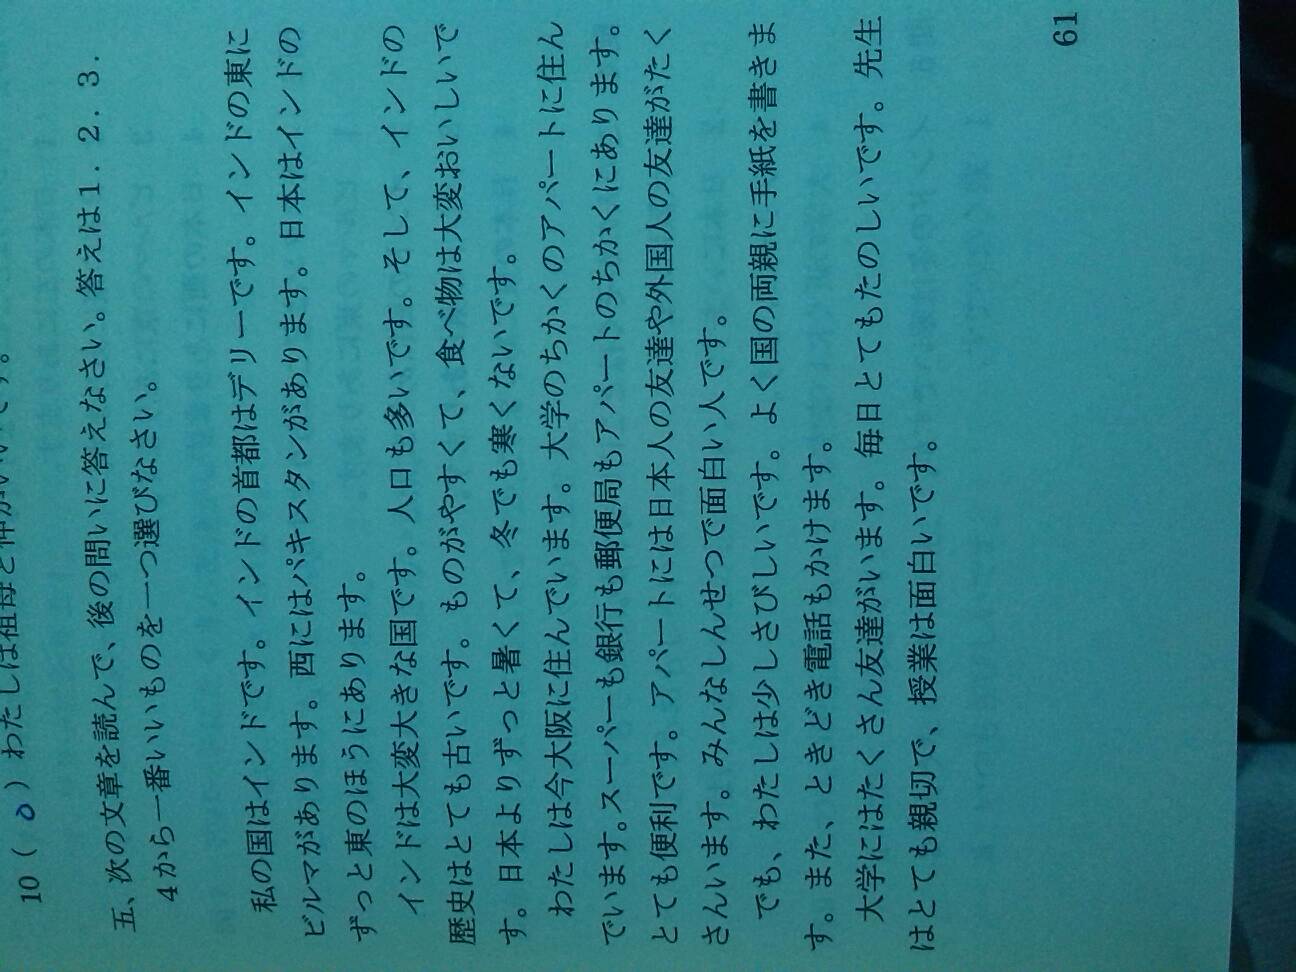 10（ ○ ）わたしは祖母と
五、次の文章を読んで、後の問いに答えなさい。答えは１．２．３．
４から一番いいものを一つ選びなさい。
私の国はインドです。インドの首都はデリーです。インドの東に
ビルマがあります。西にはパキスタンがあります。日本はインドの
ずっと東のほうにあります。
インドは大変大きな国です。人口も多いです。そして、インドの
歴史はとても古いです。ものがやすくて、食べ物は大変おいしいで
す。日本よりずっと暑くて、冬でも寒くないです。
わたしは今大阪に住んでいます。大学のちかくのアパートに住ん
でいます。スーパーも銀行も郵便局もアパートのちかくにあります。
とても便利です。アパートには日本人の友達や外国人の友達がたく
さんいます。みんなしんせつで面白い人です。
でも、わたしは少しさびしいです。よく国の両親に手紙を書きま
す。また、ときどき電話もかけます。
大学にはたくさん友達がいます。毎日とてもたのしいです。先生
はとても親切で、授業は面白いです。
61